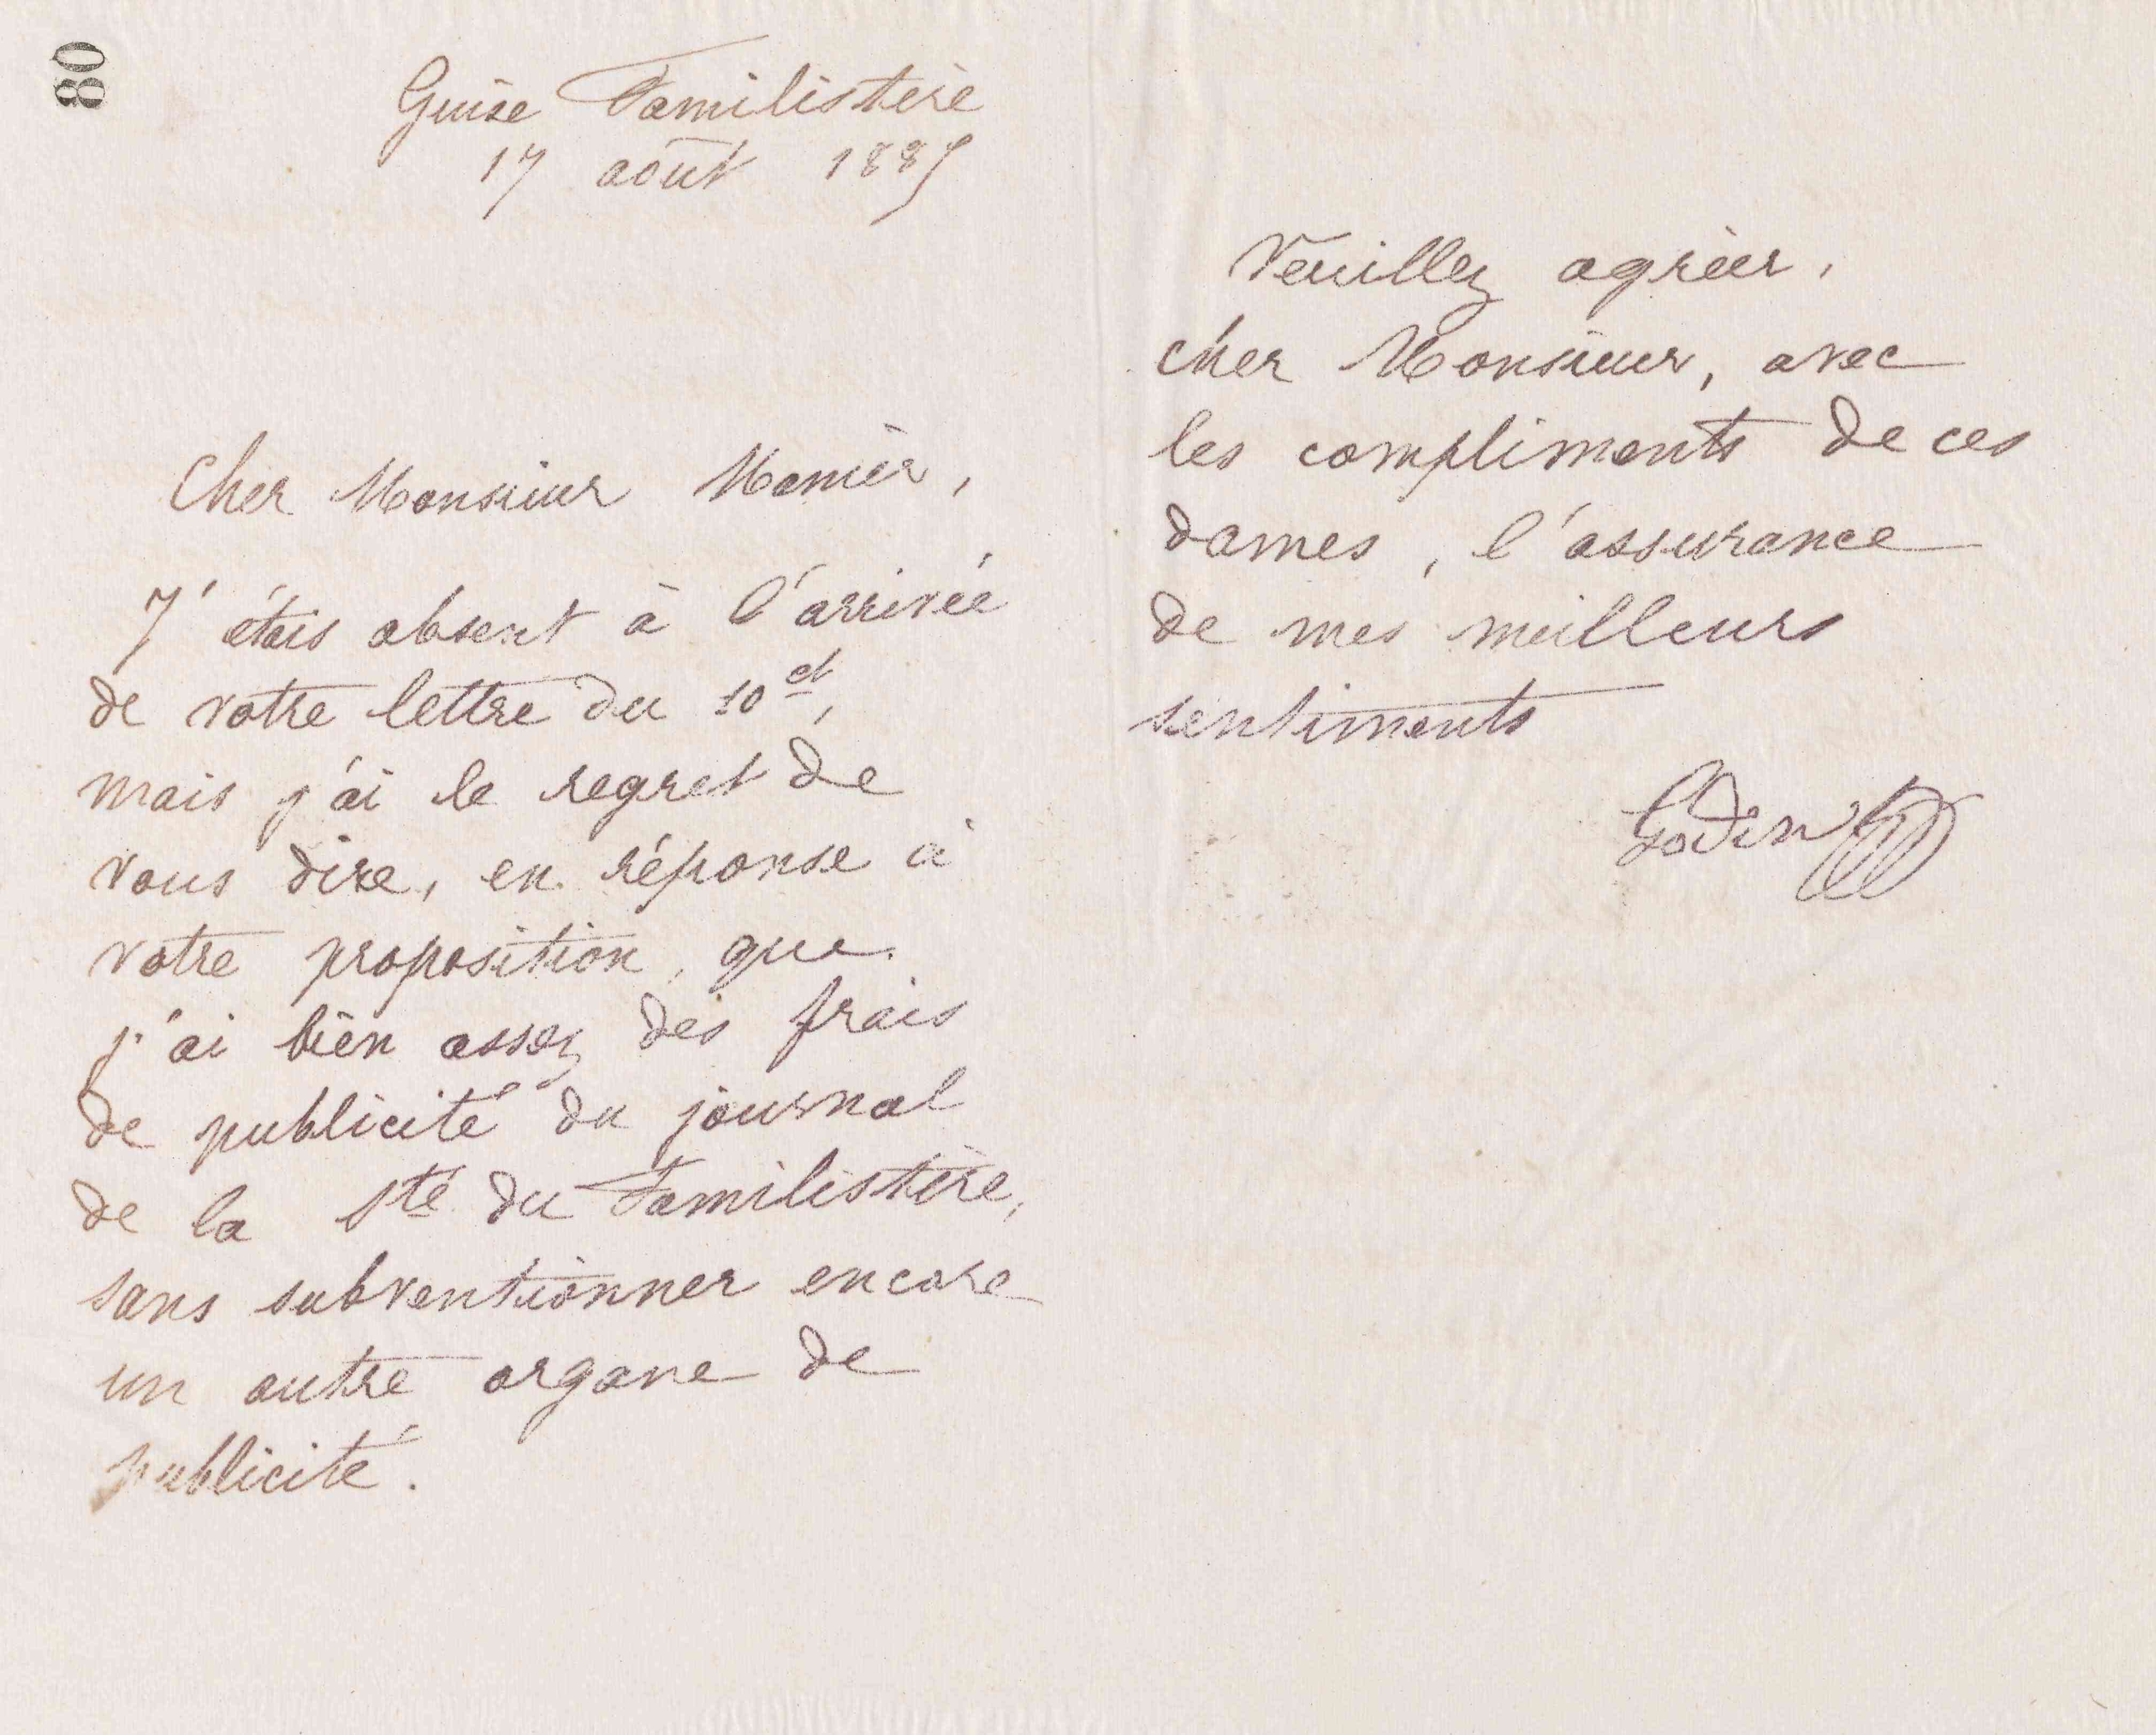 80
Guise Familistère
17 août 1885
Cher Monsieur Manier,
J'étais absent à l'arrivée
de votre lettre du 10 ct,
mais j'ai le regret de
vous dire, en réponse à
votre proposition, que
j'ai bien assez des frais
de publicité du journal
de la Sté du Familistère,
sans subventionner encore
un autre organe de
publicité.
Veuillez agréer,
cher Monsieur, avec
les compliments de ces
dames, l'assurance
de mes meilleurs
sentiments
Godin